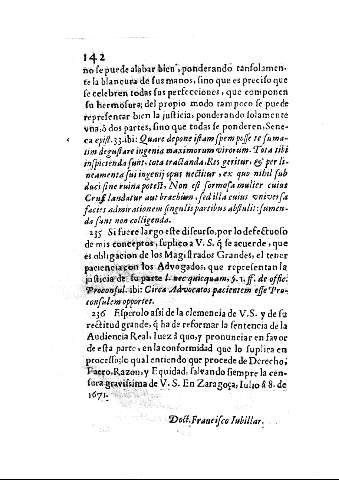 142
no se puede alabar bien, ponderando tansolamen-
te la blancura de sus manos, sino que es preciso que
se celebren todas sus perfecciones, que componen
su hermosura; del propio modo tampoco se puede
representar bien la justicia, ponderando solamente
vna, ò dos partes, sino que todas se ponderen, Sene-
ca epist. 33. ibi: Quare depone istam spem posse te suma-
tim degustare ingenia maximorum virorum. Tota tibi
inspicienda sunt, tota tractanda. Res geritur, & per li-
neamenta sui ingenij opus nectitur, ex quo nihil sub
duci sine ruina potest. Non est formosa mulier cuius
Crus laudatur aut brachium, sed illa cuius vniversa
facies admirationem singulis partibus abstulit: sumen-
da sunt non colligenda.
235 Si fuere largo este disurso, por lo defectuoso
de mis conceptos, suplico a V. S. q̃ se acuerde, que
es obligacion de los Magistrados Grandes, el tener
paciencia con los Advogados, que representan la
justicia de su parte l. nec quicquam, §. 1. ff. de offic.
Proconsul. ibi: Circa Advocatos pacientem esse Pro-
consulem oportet.
236 Espero lo assi de la clemencia de V. S. y de su
rectitud grande, q̃ ha de reformar la sentencia de la
Audiencia Real, luez à quo, y pronunciar en favor
de esta parte, en la conformidad que lo suplica en
processo; lo qual entiendo que procede de Derecho,
Fuero, Razon, y Equidad, salvando siempre la cen-
sura gravissima de V. S. En Zaragoça, Iulio à 8. de
1671.
Doct. Francisco Iubillar.